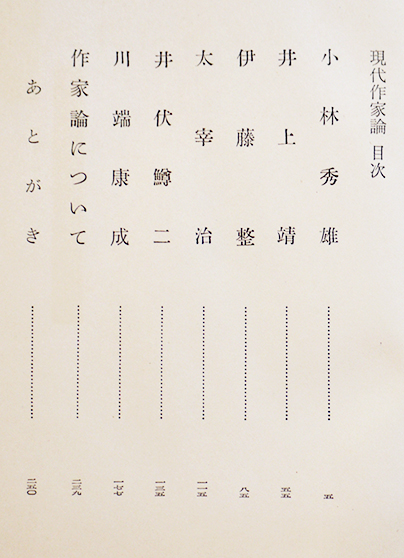 現代作家論 目次
小林秀雄……………………五
井上靖……………………五五
伊藤整……………………八五
太宰治……………………一一五
井伏鱒二……………………一三五
川端康成……………………一七七
作家論について……………………二三九
あとがき……………………二五〇